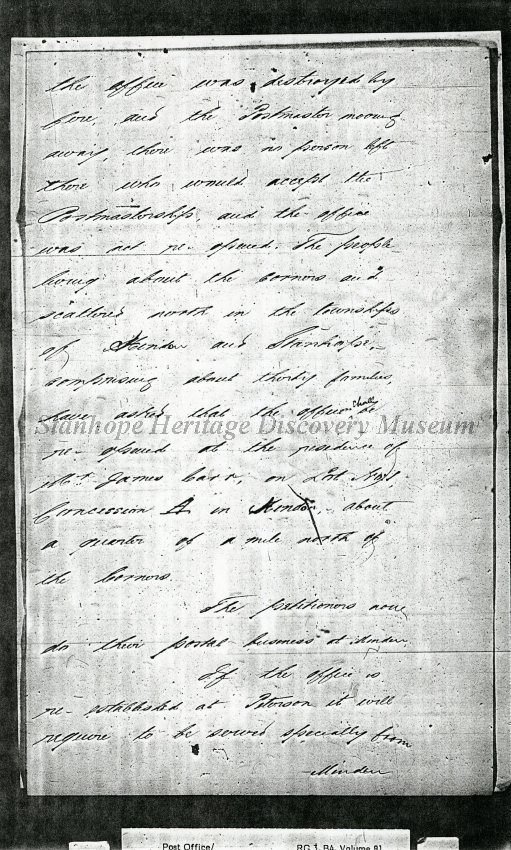 the office was destroyed by
fire, and the Postmaster moving
away, there was no person left
there who would accept the
Postmastership, and the office
was not re-opened. The people
living about the Corners and
scattered north in the townships
of Minden and Stanhope,
comprising about thirty families,
have asked that the office shall be
re-opened at the residence of
Mr. James Carr, on Lot
Concession A in Minden, about
a quarter of a mile north of
the Corners.
The petitioners now
do their postal business at Minden.
If the office is
re-established at Peterson it will
require to be served specially from
Minden
Stanhope Heritage Discovery Museum
Post Office/ RG 3, BA, Volume 91